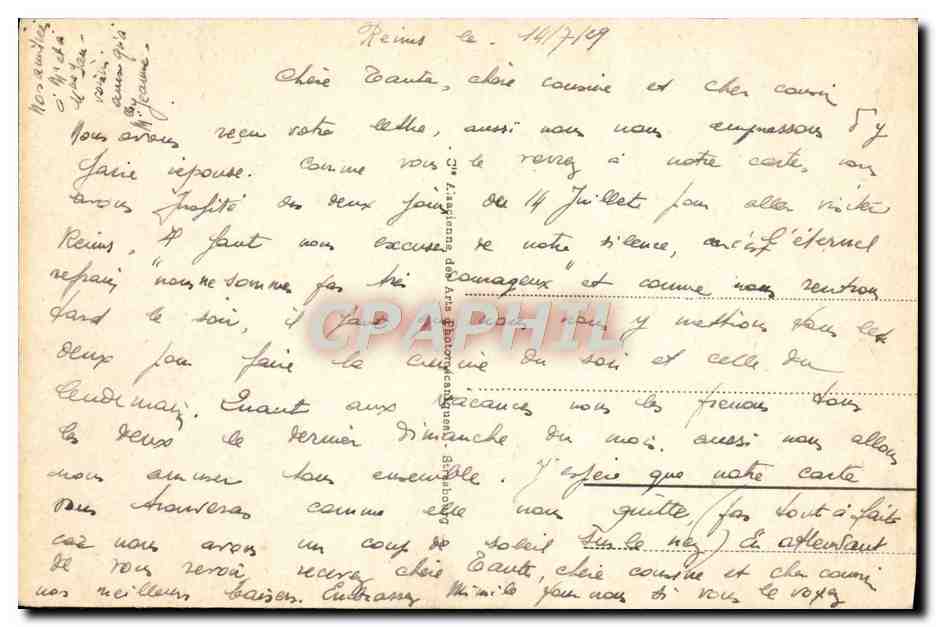 Reims le. 14/7/29
Chère Tante, chère cousine et cher cousin
Nous avons reçu votre lettre, aussi nous nous empressons d'y
faire réponse. Comme vous le verrez à notre carte, nous
avons profité des deux jours du 14 Juillet pour aller visiter
Reims, Il faut nous excuser de notre silence, c'est l'éternel
refrain "nous ne sommes pas très courageux" et comme nous rentrons
tard le soir, il faut que nous nous y mettions tous les
deux pour faire la cuisine du soir et celle du
lendemain. Quant aux vacances nous les prenons tous
les deux le dernier dimanche du mois, aussi nous allons
nous amuser tous ensemble. J'espère que notre carte
vous trouveras comme elle nous quitte, (pas tout à fait
car nous avons un coup de soleil sur le nez) En attendant
de vous revoir recevez chère Tante, chère cousine et cher cousin
nos meilleurs baisers. Embrassez Mimile pour nous si vous le voyez
Nos amitiés
à Mr et
ainsi qu'à
Jeanne
Cie Alsacienne des Arts Photomécaniques - Strasbourg
CPAPHIL